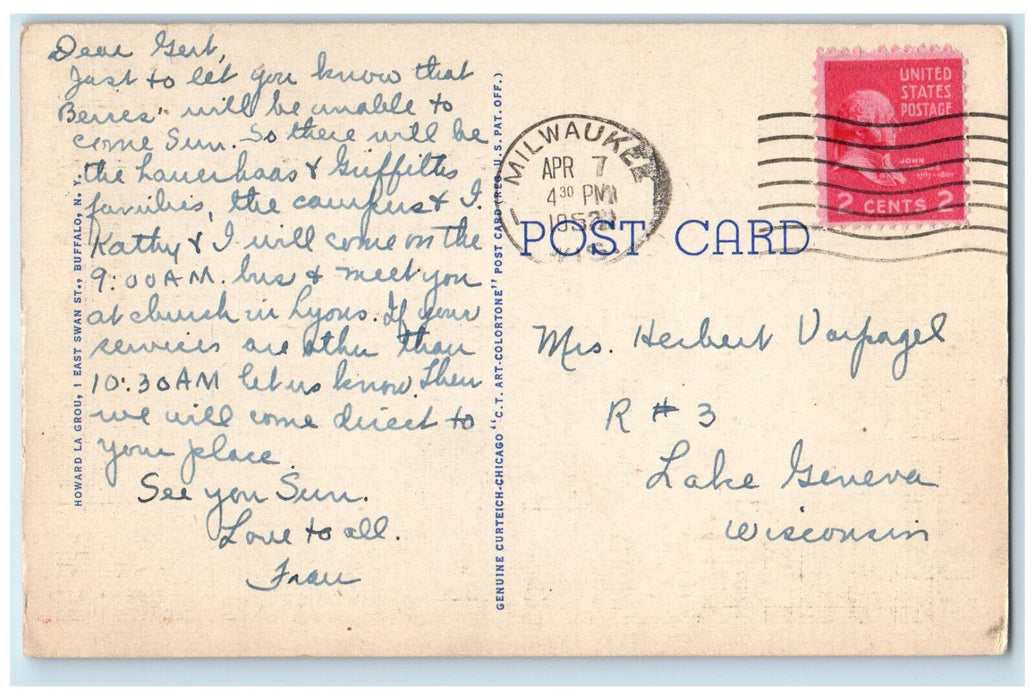 Dear Gert,
Just to let you know that
" will be unable to
come Sun. So there will be
the & Griffiths
families, the & I.
Kathy & I will come on the
9:00 AM. bus & meet you
at church in Lyons. If your
services are other than
10:30 AM let us know. Then
we will come direct to
your place.
See you Sun.
Love to all.
Fran
HOWARD LA GROU, 1 EAST SWAN ST., BUFFALO, N. Y.
GENUINE CURTEICH-CHICAGO "C.T. ART-COLORTONE" POST CARD (REG. U.S. PAT. OFF.)
MILWAUKEE
APR 7
4 30 PM
WIS
UNITED
STATES
POSTAGE
JOHN
2 CENTS 2
POST CARD
Mrs. Herbert Vorpagel
R # 3
Lake Geneva
Wisconsin